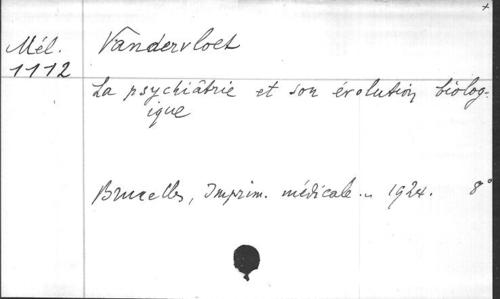 Mél. Vandervloet
1112
La psychiâtrie et son évolution biolog-
ique
Bruxelles, Imprim. médicale.. 1924. 8°